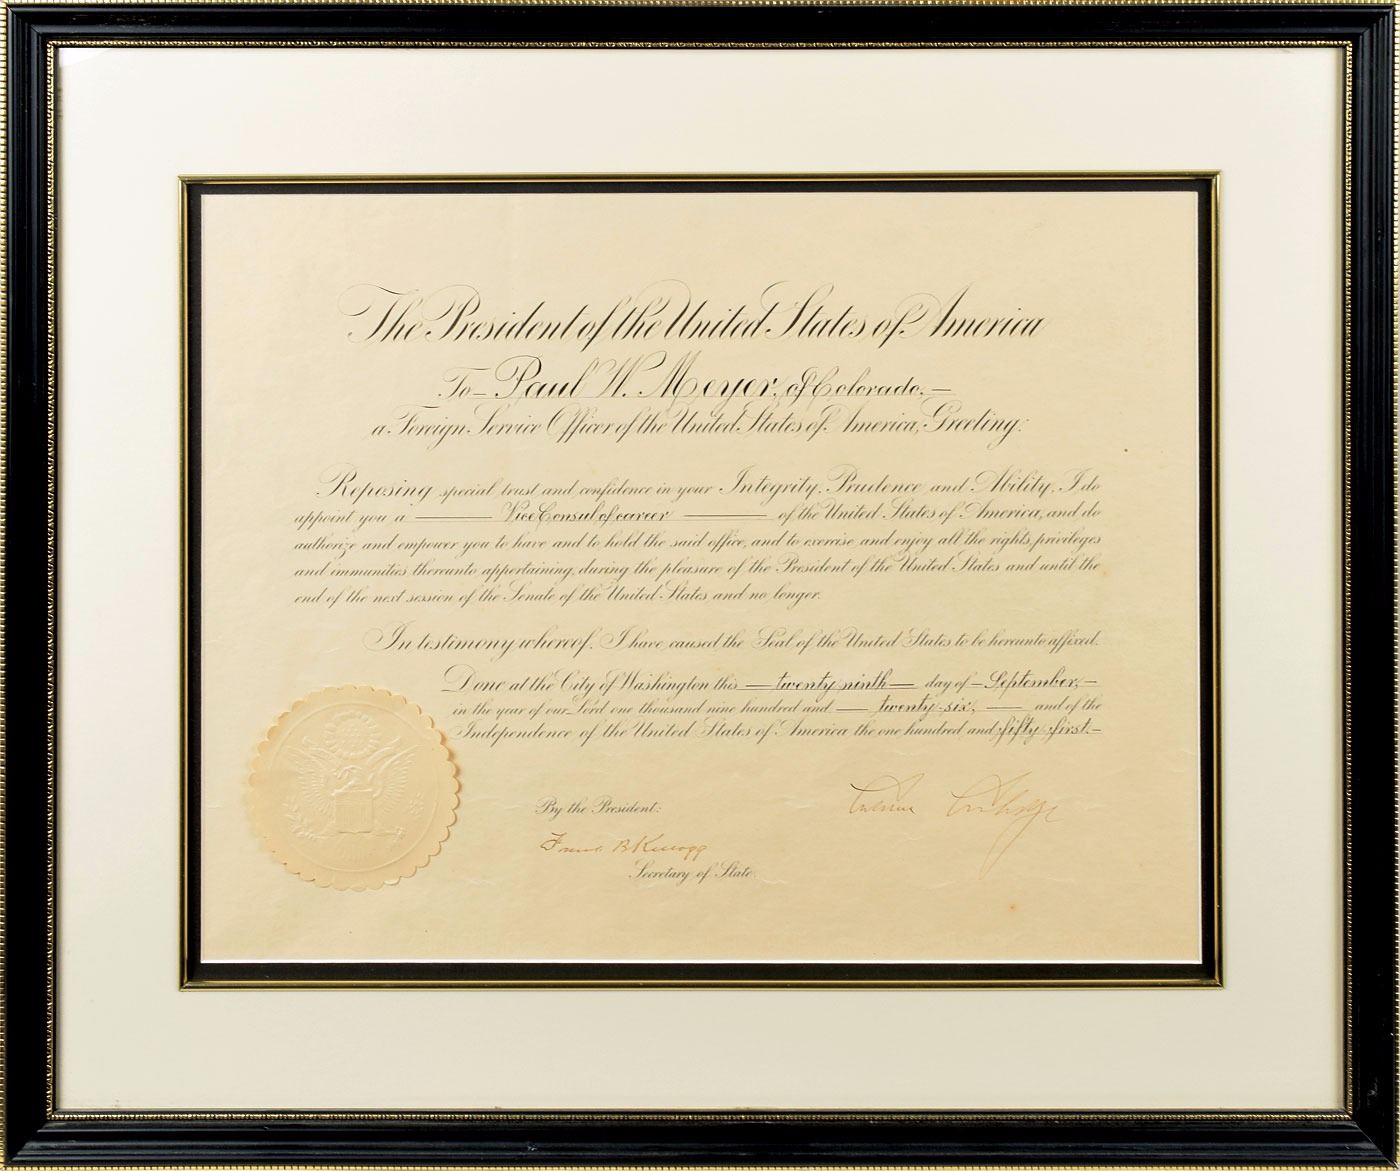 The President of the United States of America
To — Paul W. Meyer, of Colorado, —
a Foreign Service Officer of the United States of America, Greeting:
Reposing special trust and confidence in your Integrity, Prudence and Ability, I do
appoint you a — Vice Consul of career — of the United States of America, and do
authorize and empower you to have and to hold the said office, and to exercise and enjoy all the rights, privileges
and immunities thereunto appertaining, during the pleasure of the President of the United States and until the
end of the next session of the Senate of the United States, and no longer.
In testimony whereof, I have caused the Seal of the United States to be hereunto affixed.
Done at the City of Washington this — twenty-ninth — day of — September, —
in the year of our Lord one thousand nine hundred and — twenty-six, — and of the
Independence of the United States of America the one hundred and fifty-first. —
Calvin Coolidge
By the President:
Frank B Kellogg
Secretary of State.